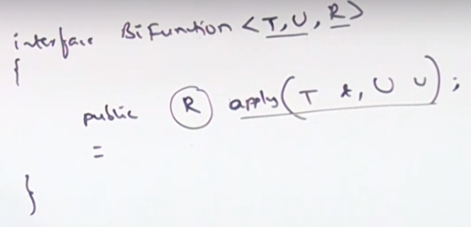 interface BiFunction <T,U,R>
{
public R apply(T t, U u);
=
}